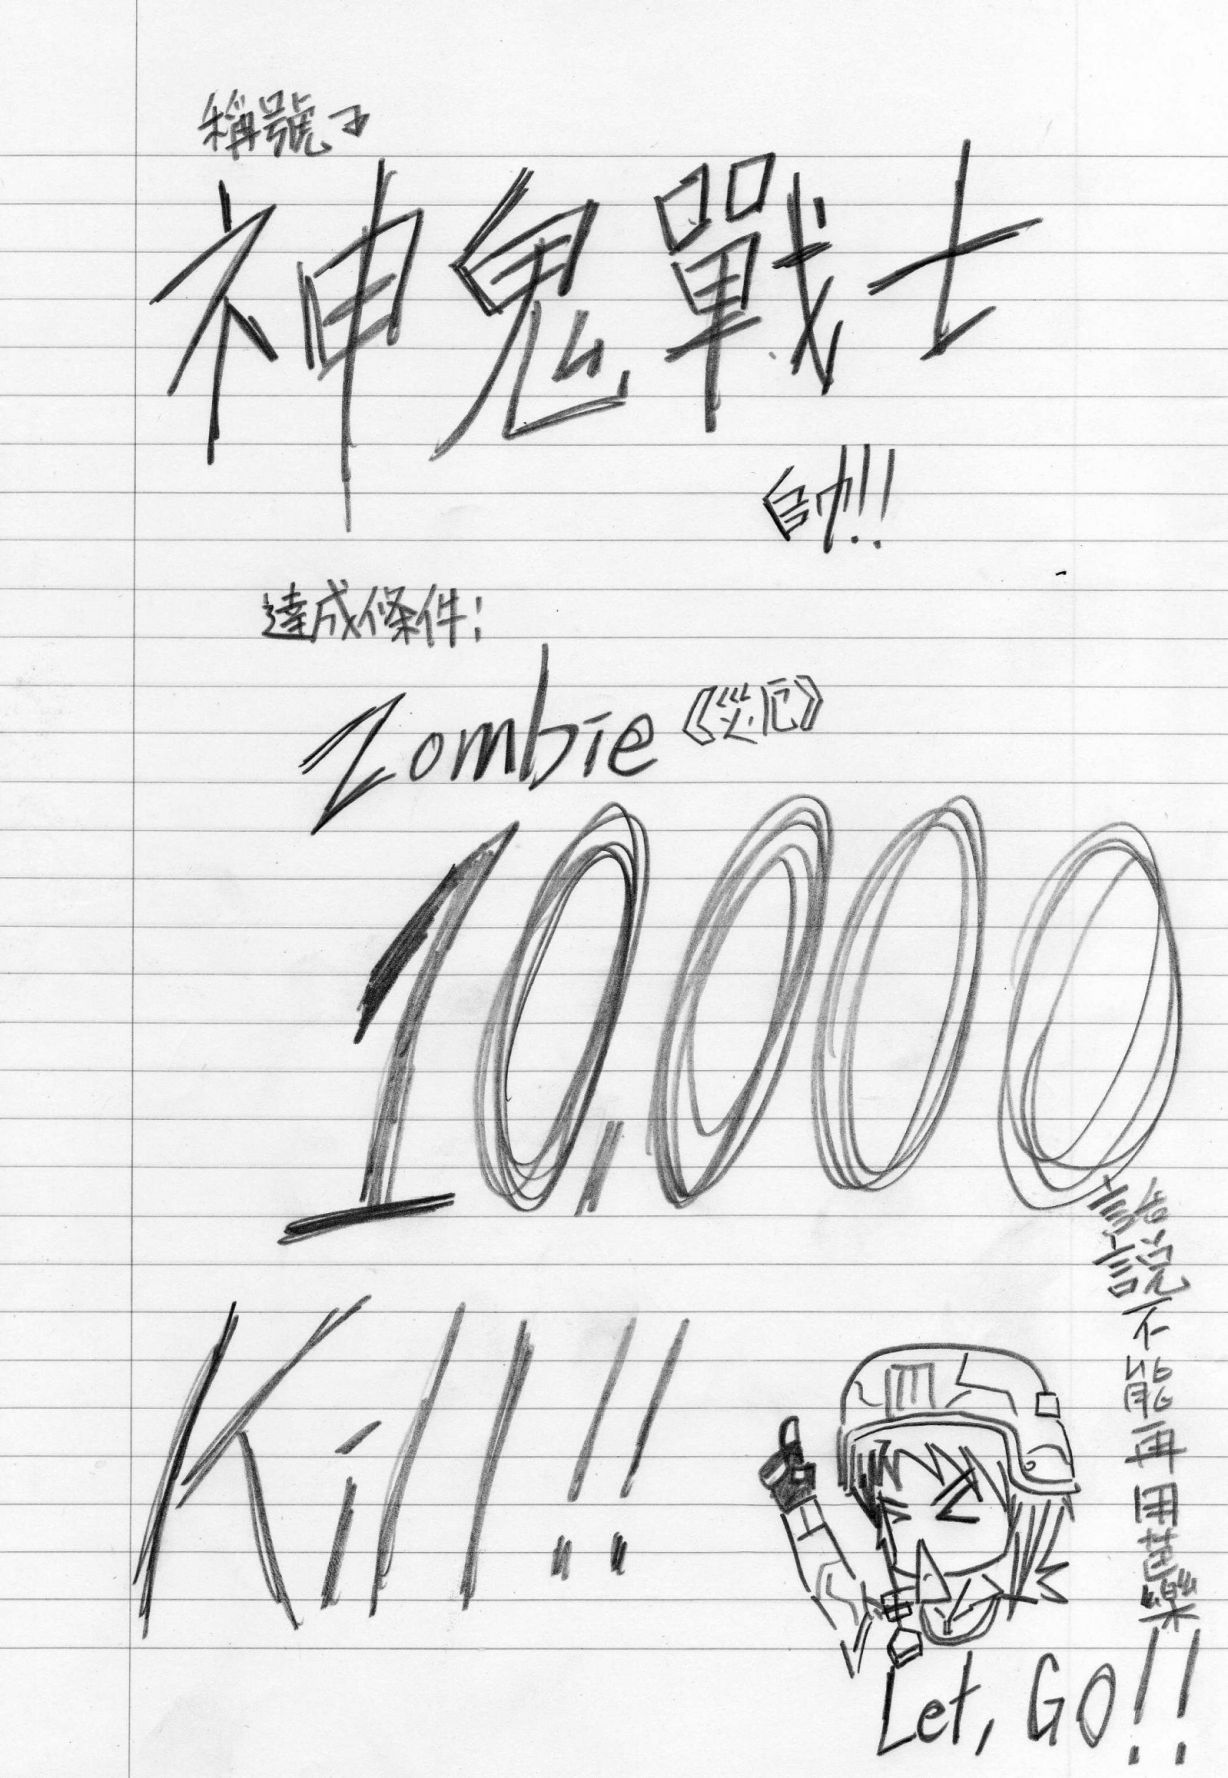 稱號
神鬼戰士
帥!!
達成條件:
Zombie《災厄》
10,000
Kill!!
說不能再用芭樂
Let, GO!!